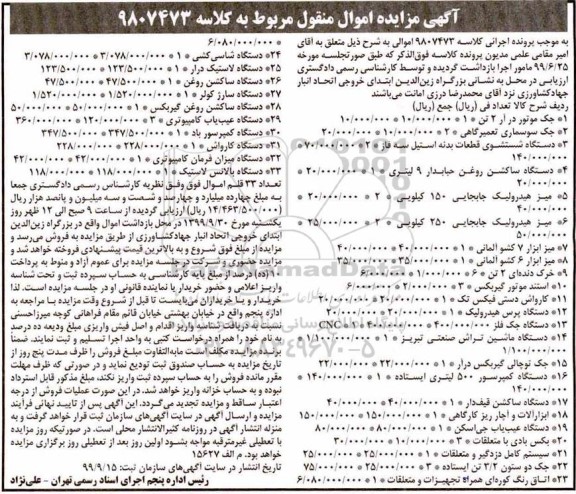 آگهی مزایده اموال منقول مربوط به کلاسه ۹۸۰۷۴۷۳
به موجب پرونده اجرائی کلاسه ۹۸۰۷۴۷۳ اموالی به شرح ذیل متعلق به آقای
امیر مقامی علمی مدیون پرونده کلاسه فوق‌الذکر که طبق صورتجلسه مورخه
۹۹/۶/۲۵ مامور اجرا بازداشت گردیده و توسط کارشناسی رسمی دادگستری
ارزیابی در محل به نشانی بزرگراه زین‌الدین ابتدای خروجی اتحاد انبار
جهادکشاورزی نزد آقای محمدرضا درزی امانت می‌باشند
ردیف شرح کالا تعداد فی (ریال) جمع (ریال)
۱ جک موتور در آر ۲ تن * ۱ * ۱۰/۰۰۰/۰۰۰ * ۱۰/۰۰۰/۰۰۰
۲ جک سوسماری تعمیرگاهی * ۲ * ۱۰/۰۰۰/۰۰۰ * ۲۰/۰۰۰/۰۰۰
۳ دستگاه شستشوی قطعات بدنه استیل سه فاز * ۲ * ۷۰/۰۰۰/۰۰۰ *
۱۴۰/۰۰۰/۰۰۰
۴ دستگاه ساکشن روغن حبابدار ۹ لیتری * ۱ * ۲۰/۰۰۰/۰۰۰ *
۲۰/۰۰۰/۰۰۰
۵ میز هیدرولیک جابجایی ۱۵۰ کیلویی * ۲ * ۲۰/۰۰۰/۰۰۰ *
۴۰/۰۰۰/۰۰۰
۶ میز هیدرولیک جابجایی ۲۵۰ کیلویی * ۲ * ۲۵/۰۰۰/۰۰۰ *
۵۰/۰۰۰/۰۰۰
۷ میز ابزار ۷ کشو آلمانی * ۱ * ۴۰/۰۰۰/۰۰۰ * ۴۰/۰۰۰/۰۰۰
۸ میز ابزار ۶ کشو آلمانی * ۱ * ۳۵/۰۰۰/۰۰۰ * ۳۵/۰۰۰/۰۰۰
۹ خرک دنده‌ای ۲ تن * ۶ * ۱/۰۰۰/۰۰۰ * ۶/۰۰۰/۰۰۰
۱۰ استند موتور گیربکس * ۲ * ۳/۰۰۰/۰۰۰ * ۶/۰۰۰/۰۰۰
۱۱ کارواش دستی فیکس تک * ۱ * ۲۰/۰۰۰/۰۰۰ * ۲۰/۰۰۰/۰۰۰
۱۲ دستگاه پرس هیدرولیک * ۱ * ۲۰/۰۰۰/۰۰۰ * ۲۰/۰۰۰/۰۰۰
۱۳ دستگاه جک فلز CNC * ۱ * ۴۰۰/۰۰۰/۰۰۰ * ۴۰۰/۰۰۰/۰۰۰
۱۴ دستگاه ماشین تراش صنعتی تبریز * ۱ * ۱/۱۰۰/۰۰۰/۰۰۰ *
۱/۱۰۰/۰۰۰/۰۰۰
۱۵ جک توچالی گیربکس درار * ۱ * ۲۲/۰۰۰/۰۰۰ * ۲۲/۰۰۰/۰۰۰
۱۶ دستگاه کمپرسور ۵۰۰ لیتری ایستاده * ۱ * ۱۴۰/۰۰۰/۰۰۰ *
۱۴۰/۰۰۰/۰۰۰
۱۷ دستگاه ساکشن قیف‌دار * ۱ * ۴۰/۰۰۰/۰۰۰ * ۴۰/۰۰۰/۰۰۰
۱۸ ابزارآلات و آچار ریز کارگاهی * ۱ * ۱۵۰/۰۰۰/۰۰۰ * ۱۵۰/۰۰۰/۰۰۰
۱۹ دستگاه عیب‌یاب جی‌اسکن * ۱ * ۸۰/۰۰۰/۰۰۰ * ۸۰/۰۰۰/۰۰۰
۲۰ بکس بادی با متعلقات * ۳ * ۱۰/۰۰۰/۰۰۰ * ۳۰/۰۰۰/۰۰۰
۲۱ سیستم کامل دزدگیر و متعلقات * ۱ * ۲۵/۰۰۰/۰۰۰ * ۲۵/۰۰۰/۰۰۰
۲۲ جک دو ستون ۳/۲ تن ایستاده * ۳ * ۲۵/۰۰۰/۰۰۰ * ۷۵/۰۰۰/۰۰۰
۲۳ اتاق رنگ کوره‌ای همراه تجهیزات و متعلقات * ۱ * ۶/۰۸۰/۰۰۰/۰۰۰ *
۶/۰۸۰/۰۰۰/۰۰۰
۲۴ دستگاه شاسی‌کشی * ۱ * ۳/۰۷۸/۰۰۰/۰۰۰ * ۳/۰۷۸/۰۰۰/۰۰۰
۲۵ دستگاه لاستیک درار * ۱ * ۱۲۳/۵۰۰/۰۰۰ * ۱۲۳/۵۰۰/۰۰۰
۲۶ دستگاه ساکشن روغن * ۱ * ۴۷/۵۰۰/۰۰۰ * ۴۷/۵۰۰/۰۰۰
۲۷ دستگاه سارژ کولر * ۱ * ۱/۵۰۰/۰۰۰
۲۸ دستگاه ساکشن روغن گیربکس * ۱ * ۵۰/۰۰۰/۰۰۰ * ۵۰/۰۰۰/۰۰۰
۲۹ دستگاه عیب‌یاب کامپیوتری * ۳ * ۱۲۰/۰۰۰/۰۰۰ * ۳۶۰/۰۰۰/۰۰۰
۳۰ دستگاه کمپرسور باد * ۱ * ۳۴۷/۵۰۰/۰۰۰ * ۳۴۷/۵۰۰/۰۰۰
۳۱ دستگاه کارواش * ۱ * ۲۲۸/۰۰۰/۰۰۰ * ۲۲۸/۰۰۰/۰۰۰
۳۲ دستگاه میزان فرمان کامپیوتری * ۱ * ۴۲/۰۰۰/۰۰۰ * ۴۲/۰۰۰/۰۰۰
۳۳ دستگاه بالانس لاستیک * ۱ * ۱۱۸/۰۰۰/۰۰۰ * ۱۱۸/۰۰۰/۰۰۰
تعداد ۳۳ قلم اموال فوق وفق نظریه کارشناس رسمی دادگستری جمعا
به مبلغ چهارده میلیارد و چهارصد و شصت و سه میلیون و پانصد هزار ریال
(۱۴/۴۶۳/۵۰۰/۰۰۰ ریال) ارزیابی گردیده از ساعت ۹ صبح الی ۱۲ ظهر روز
یکشنبه مورخ ۱۳۹۹/۹/۳۰ در محل بازداشت اموال واقع در بزرگراه زین‌الدین
ابتدای خروجی اتحاد انبار جهادکشاورزی از طریق مزایده به فروش می‌رسد و
مزایده از مبلغ فوق شروع و به بالاترین قیمت پیشنهادی فروخته خواهد شد و
مزایده حضوری و شرکت در جلسه مزایده برای عموم آزاد و منوط به پرداخت
۱۰ (ده) درصد از مبلغ پایه کارشناسی به حساب سپرده ثبت و تحت شناسه
واریز اعلامی و حضور خریدار یا نماینده قانونی او در جلسه مزایده است، لذا
خریدار و یا خریداران می‌بایست تا قبل از شروع وقت مزایده با مراجعه به
اداره پنجم واقع در خیابان بهشتی خیابان قائم مقام فراهانی کوچه میرزاحسنی
نسبت به دریافت شناسه واریز اقدام و اصل فیش واریزی مبلغ ودیعه ده درصد
به نام خود را همراه درخواست کتبی به واحد اجرا تسلیم و ثبت نمایند. ضمناً
برنده مزایده مکلف است مابه‌التفاوت مبلغ فروش را ظرف مدت پنج روز از
تاریخ مزایده به حساب صندوق ثبت تودیع نماید و در صورتی که ظرف مهلت
مقرر مانده فروش را به حساب سپرده ثبت واریز نکند، مبلغ مذکور قابل استرداد
نبوده و به حساب خزانه واریز خواهد شد. در این صورت عملیات فروش از درجه
اعتبار ساقط و مزایده تجدید می‌گردد. این آگهی پس از تایید نهائی فرآیند
مزایده و ارسال آگهی در سایت آگهی‌های سازمان ثبت قرار خواهد گرفت و به
منزله انتشار آگهی در روزنامه کثیرالانتشار محلی است. در صورتیکه روز مزایده
با تعطیلی غیرمترقبه مواجه بشود اولین روز بعد از تعطیلی روز برگزاری مزایده
خواهد بود. م الف ۱۵۶۲۷
تاریخ انتشار در سایت آگهی‌های سازمان ثبت: ۹۹/۹/۱۵
رئیس اداره پنجم اجرای اسناد رسمی تهران - علی‌نژاد